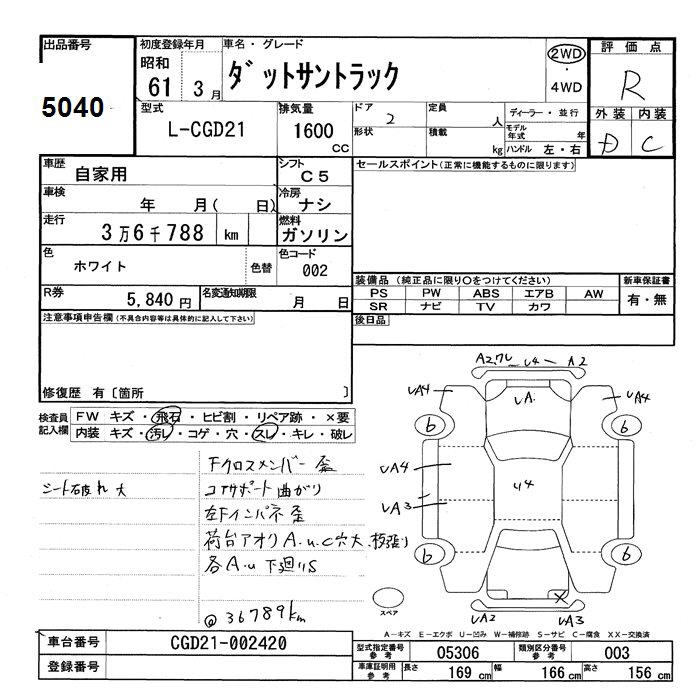 出品番号
5040
初度登録年月
昭和
61 3月
車名・グレード
ダットサントラック
2WD
・
4WD
評価点
R
外装 内装
D C
型式
L-CGD21
排気量
1600
CC
ドア
2
定員
人
ディーラー・並行
形状
積載
kg
モデル年式
年
ハンドル 左・右
車歴
自家用
シフト
C5
車検
年 月( 日)
冷房
ナシ
走行
3万6千788 km
燃料
ガソリン
色
ホワイト
色替
色コード
002
R券
5,840円
名変通知期限
月 日
セールスポイント(正常に機能するものに限ります)
装備品 (純正品に限り○をつけてください)
PS PW ABS エアB AW
SR ナビ TV カワ
新車保証書
有・無
後日品
注意事項申告欄(不具合内容等は具体的に記入して下さい)
修復歴 有〔箇所 〕
検査員
記入欄
FW キズ・飛石・ヒビ割・リペア跡・×要
内装 キズ・汚レ・コゲ・穴・スレ・キレ・破レ
シート破れ大
Fクロスメンバー歪
コアサポート曲がり
左Fインパネ歪
荷台アオリA.u.C穴大、板張り
各A.u 下廻りS
@36789km
A2.ワレ U4 A2
UA4
UA
UA4
6
6
UA4
UA3
U4
6
6
×
UA2
UA3
スペア
A-キズ E-エクボ U-凹み W-補修跡 S-サビ C-腐食 XX-交換済
車台番号
CGD21-002420
登録番号
型式指定番号
参考
05306
類別区分番号
参考
003
車庫証明用
参考
長さ 169 cm 幅 166 cm 高さ 156 cm